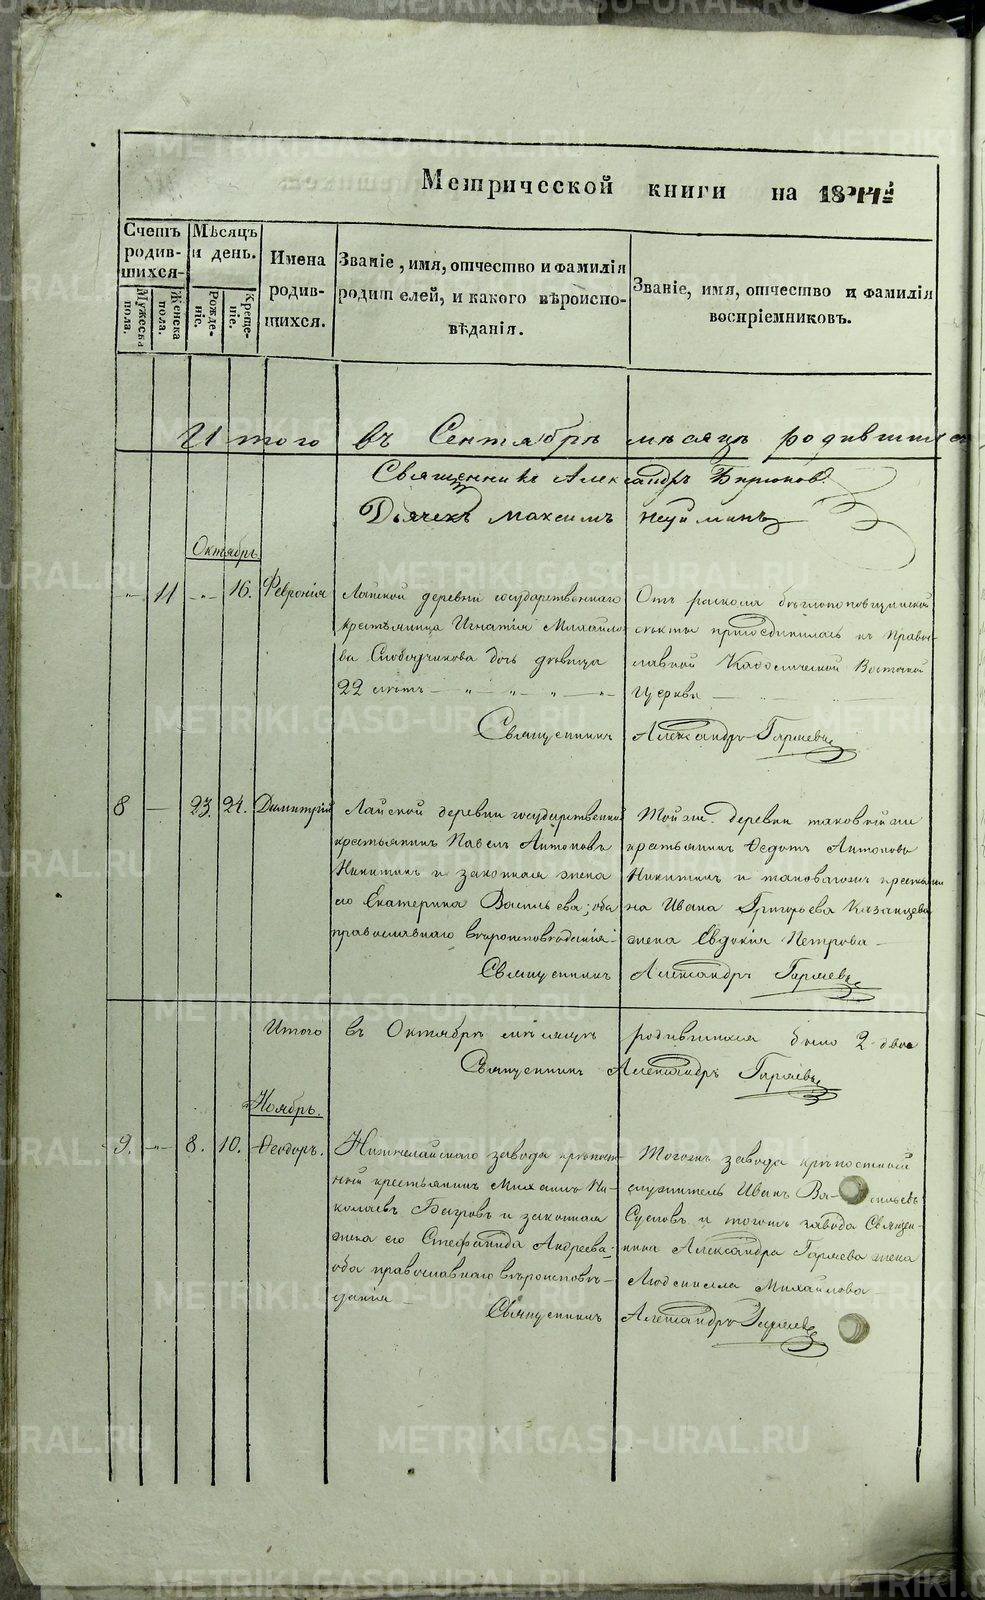 Метрической книги на 1844й
Счетъ родив-шихся
Мѣсяцъ и день.
Имена родив-шихся.
Званіе, имя, отчество и фамилія родителей, и какого вѣроиспо-вѣданія.
Званіе, имя, отчество и фамилія воспріемниковъ.
Мужеска пола.
Женска пола.
Рожде-ніе.
Креще-ніе.
Итого въ Сентябрѣ мѣсяцѣ родившихся
Священникъ Александръ Бирюковъ
Дьячекъ Максимъ Неуйминъ
Октябрь.
11 16. Февронія
Лайской деревни государственнаго
крестьянина Игнатія Михайло-
ва Слободчикова дочь девица
22 лѣтъ
Отъ раскола бѣглопоповщинской
секты присоединилась къ Право-
славной Каѳолической Восточной
Церкви
Священникъ Александръ Гаряевъ
8 23. 24. Димитрій
Лайской деревни государственной
крестьянинъ Павелъ Антоновъ
Никитинъ и законная жена
его Екатерина Васильева; оба
православнаго вѣроисповѣданія
Той же деревни таковый же
крестьянинъ Федотъ Антоновъ
Никитинъ и таковагожъ крестьяни-
на Ивана Григорьева Казанцева
жена Евдокія Петрова
Священникъ Александръ Гаряевъ
Итого въ Октябрѣ мѣсяцѣ родившихся было 2 двое
Священникъ Александръ Гаряевъ
Ноябрь.
9. 8. 10. Ѳеодоръ.
Нижнелайскаго завода крѣпост-
ной крестьянинъ Михаилъ Ни-
колаевъ Багровъ и законная
жена его Стефанида Андреева
оба православнаго вѣроисповѣ-
данія
Тогожъ завода крѣпостный
служитель Иванъ Ва-сильевъ
Сусловъ и тогожъ завода Священ-
ника Александра Гаряева жена
Людмилла Михайлова
Священникъ Александръ Гаряевъ
METRIKI.GASO-URAL.RU